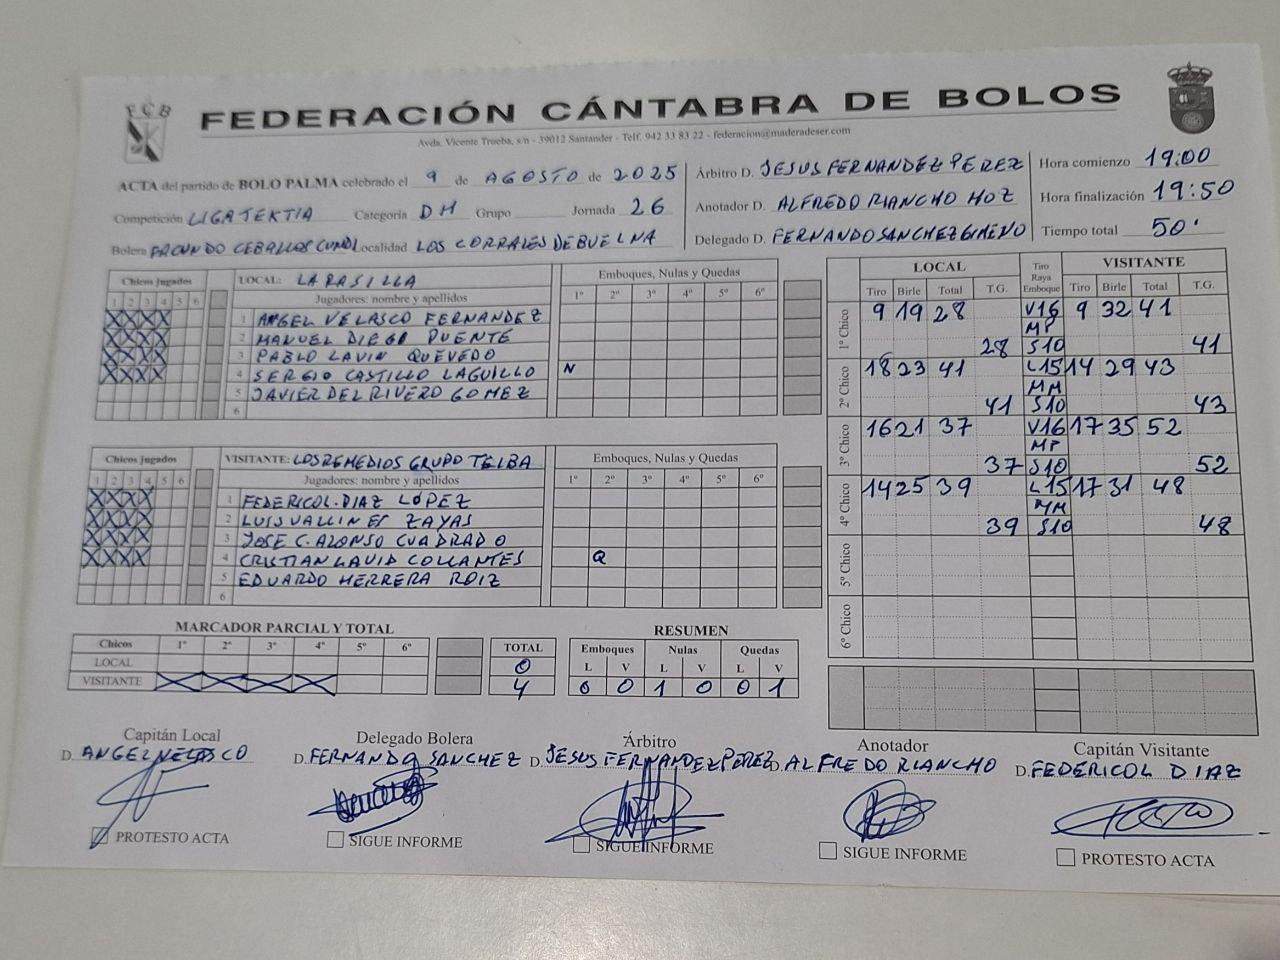 FCB
FEDERACIÓN CÁNTABRA DE BOLOS
Avda. Vicente Trueba, s/n - 39012 Santander - Telf. 942 33 83 22 - federacion@maderadeser.com
ACTA del partido de BOLO PALMA celebrado el 9 de AGOSTO de 2025
Competición LIGA TEKTIA Categoría DH Grupo Jornada 26
Bolera FACUNDO CEBALLOS Localidad LOS CORRALES DE BUELNA
Árbitro D. JESUS FERNANDEZ PEREZ
Anotador D. ALFREDO RIANCHO HOZ
Delegado D. FERNANDO SANCHEZ GIMENO
Hora comienzo 19:00
Hora finalización 19:50
Tiempo total 50'
Chicos Jugados LOCAL: LA RASILLA Emboques, Nulas y Quedas
1 2 3 4 5 6 Jugadores: nombre y apellidos 1º 2º 3º 4º 5º 6º
X X X X 1 ANGEL VELASCO FERNANDEZ
X X X X 2 MANUEL DIEGO PUENTE
X X X X 3 PABLO LAVIN QUEVEDO
X X X X 4 SERGIO CASTILLO LAGUILLO N
5 JAVIER DEL RIVERO GOMEZ
6
Chicos Jugados VISITANTE: LOS REMEDIOS GRUPO TELBA Emboques, Nulas y Quedas
1 2 3 4 5 6 Jugadores: nombre y apellidos 1º 2º 3º 4º 5º 6º
X X X X 1 FEDERICO L. DIAZ LÓPEZ
X X X X 2 LUIS VALLINES ZAYAS
X X X X 3 JOSE C. ALONSO CUADRADO
X X X X 4 CRISTIAN LAVID COLLANTES Q
5 EDUARDO HERRERA ROIZ
6
LOCAL Tiro Raya Emboque VISITANTE
Tiro Birle Total T.G. Tiro Birle Total T.G.
1º Chico 9 19 28 V16 9 32 41
MP
28 S10 41
2º Chico 18 23 41 L15 14 29 43
MM
41 S10 43
3º Chico 16 21 37 V16 17 35 52
MP
37 S10 52
4º Chico 14 25 39 L15 17 31 48
MM
39 S10 48
5º Chico
6º Chico
MARCADOR PARCIAL Y TOTAL
Chicos 1º 2º 3º 4º 5º 6º TOTAL
LOCAL 0
VISITANTE X X X X 4
RESUMEN
Emboques Nulas Quedas
L V L V L V
0 0 1 0 0 1
Capitán Local
D. ANGEL VELASCO
PROTESTO ACTA
Delegado Bolera
D. FERNANDO SANCHEZ
SIGUE INFORME
Árbitro
D. JESUS FERNANDEZ PEREZ
SIGUE INFORME
Anotador
D. ALFREDO RIANCHO
SIGUE INFORME
Capitán Visitante
D. FEDERICO L DIAZ
PROTESTO ACTA